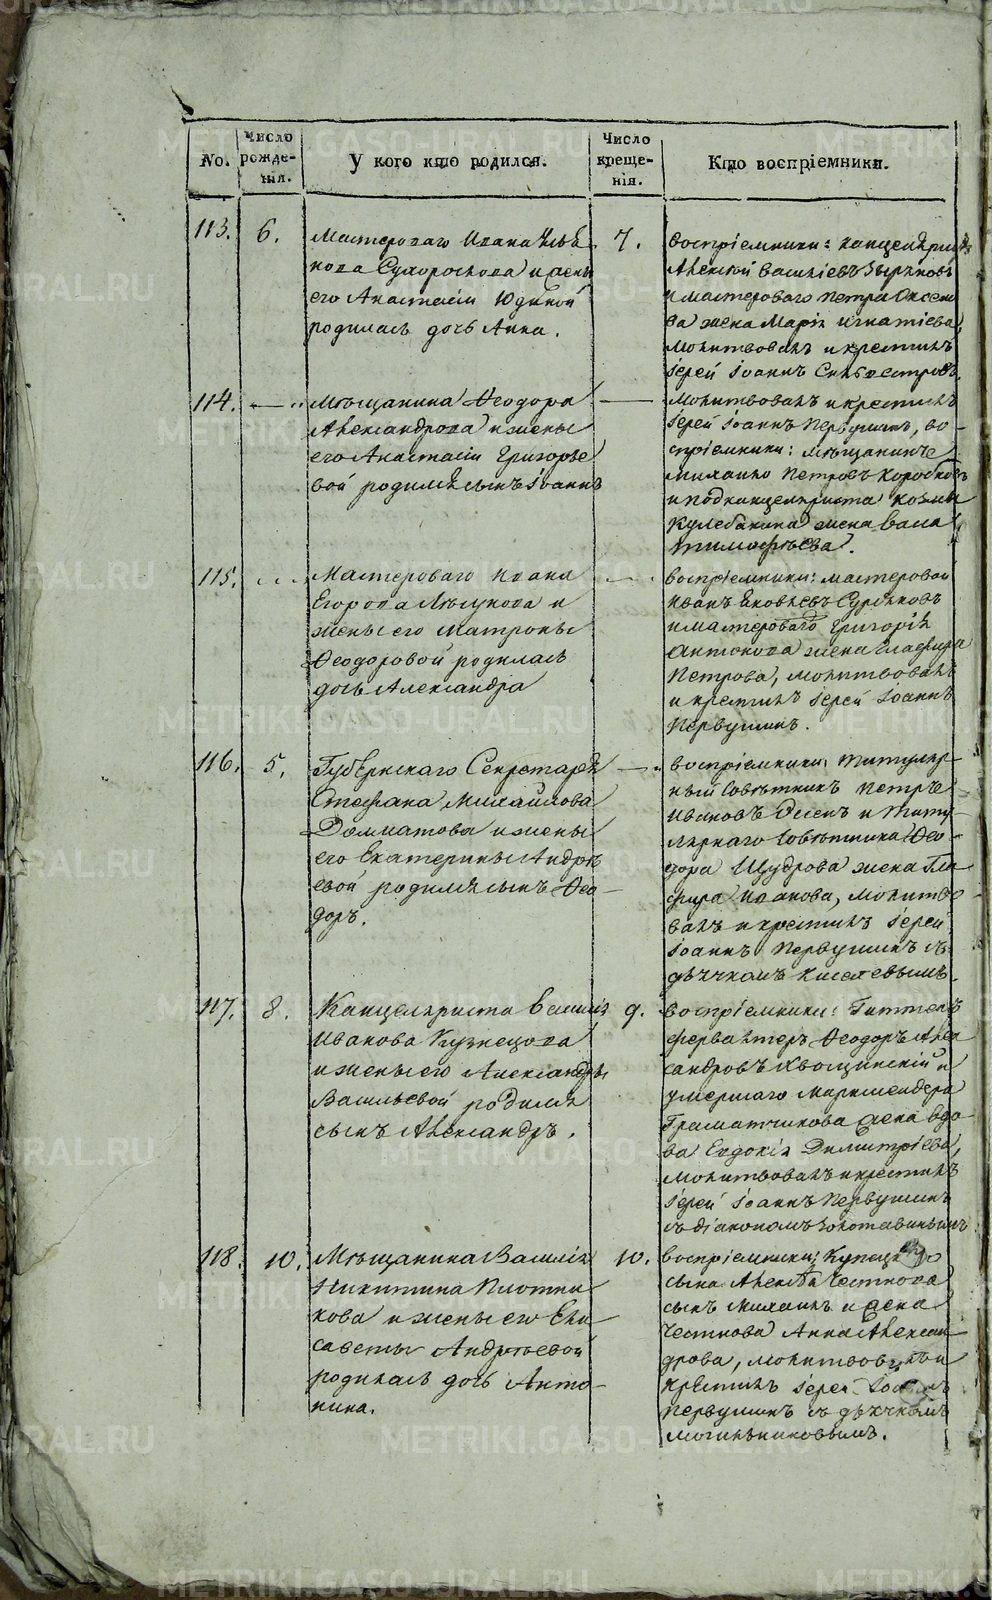 No.
Число рожде-нія.
У кого кто родился.
Число креще-нія.
Кто воспріемники.
113.
6.
Мастероваго Ивана Илье
его Анастасіи Юдиной
родилась дочь Анна.
7.
воспріемники: канцелярис
Алексей Васильевъ Зырянов
и мастероваго Петра Оксено
ва жена Марія Игнатіева,
молитвовалъ и крестилъ
іерей Іоаннъ Сильвестровъ.
114.
Мѣщанина Ѳеодора
Александрова и жены
его Анастасіи Григорье
вой родился сынъ Іоаннъ
молитвовалъ и крестилъ
іерей Іоаннъ Первушинъ, во
спріемники: мѣщанинъ
Михайло Петровъ Коробковъ
и подканцеляриста Козмы
Кулебакина жена Васа
Тимофѣева.
115.
Мастероваго Ивана
Егорова и
жены его Матроны
Ѳеодоровой родилась
дочь Александра
воспріемники: мастеровой
Иванъ Яковлевъ Суряковъ
и мастероваго Григорія
Антонова жена Глафира
Петрова, молитвовалъ
и крестилъ іерей Іоаннъ
Первушинъ.
116.
5.
Губернскаго Секретаря
Стефана Михайлова
Долматова и жены
его Екатерины Андрѣ
евой родился сынъ Ѳео-
доръ.
воспріемники: титуляр-
ный совѣтникъ Петръ
Ивановъ и титу-
лярнаго совѣтника Ѳео-
дора Щудрова жена Гла
фира Иванова, молитво
валъ и крестилъ іерей
Іоаннъ Первушинъ съ
дьячкомъ Киселевымъ.
117.
8.
Канцеляриста Василія
Иванова Кузнецова
и жены его Александры
Васильевой родился
сынъ Александръ.
9.
воспріемники: Гиттен
фервалтеръ Ѳеодоръ Алек
сандровъ Хвощинскій и
умершаго маркшейдера
Граматчикова жена вдо
ва Евдокія Димитріева,
молитвовалъ и крестилъ
іерей Іоаннъ Первушинъ
съ діакономъ Золотавинымъ
118.
10.
Мѣщанина Василія
Никитина Плотни
кова и жены его Ели
саветы Андрѣевой
родилась дочь Анто-
нина.
10.
воспріемники:
сына Алексѣя Честнова
сынъ Михаилъ и жена
Честнова Анна Алексан
дрова, молитвовалъ и
крестилъ іерей Іоаннъ
Первушинъ съ дьячкомъ
Могильниковымъ.